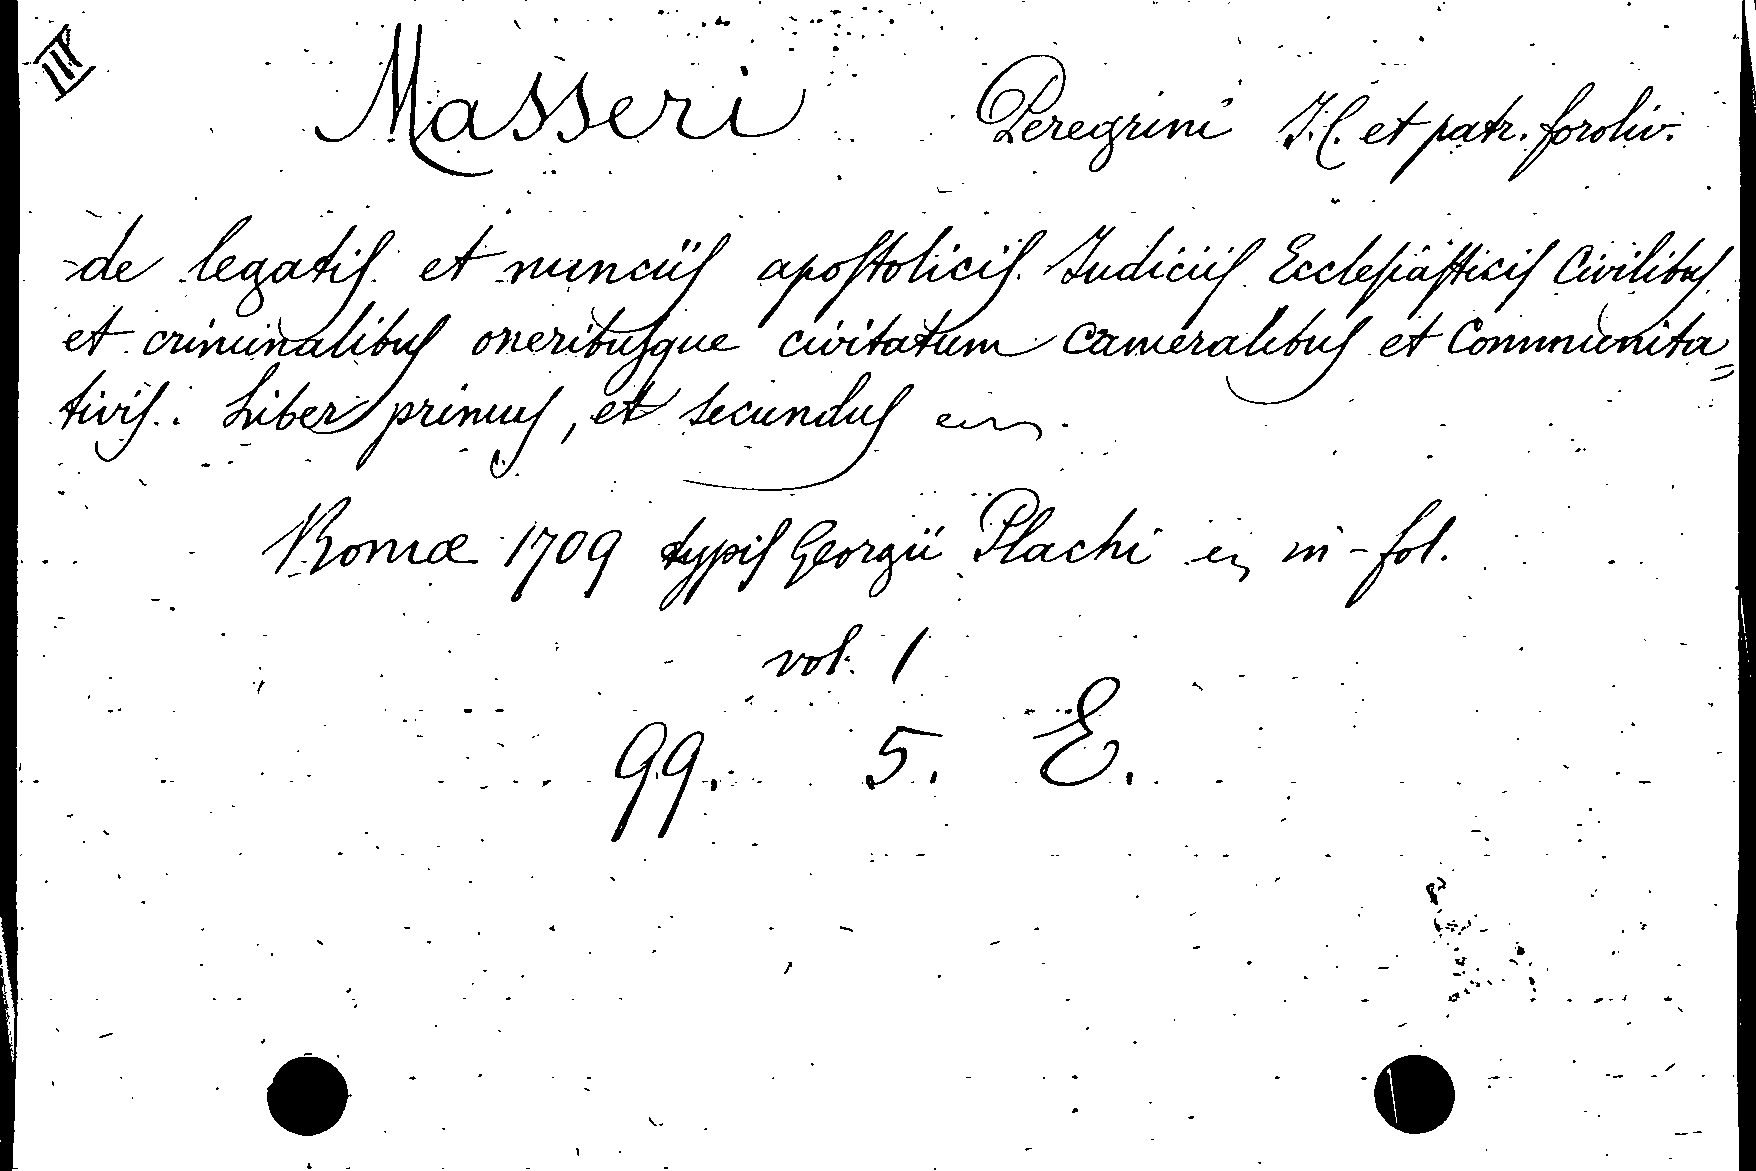 III
Masseri Peregrini J.C. et patr. foroliv.
de legatis et nunciis apostolicis Judiciis Ecclesiasticis Civilibus
et criminalibus oneribusque civitatum cameralibus et Communita=
tivis. Liber primus, et secundus
Romæ 1709 typis Georgii Plachi in-fol.
vol. 1
99. 5. E.